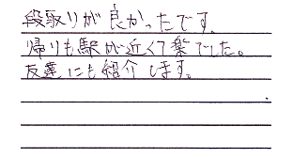 段取りが良かったです。
帰りも駅が近くて楽でした。
友達にも紹介します。